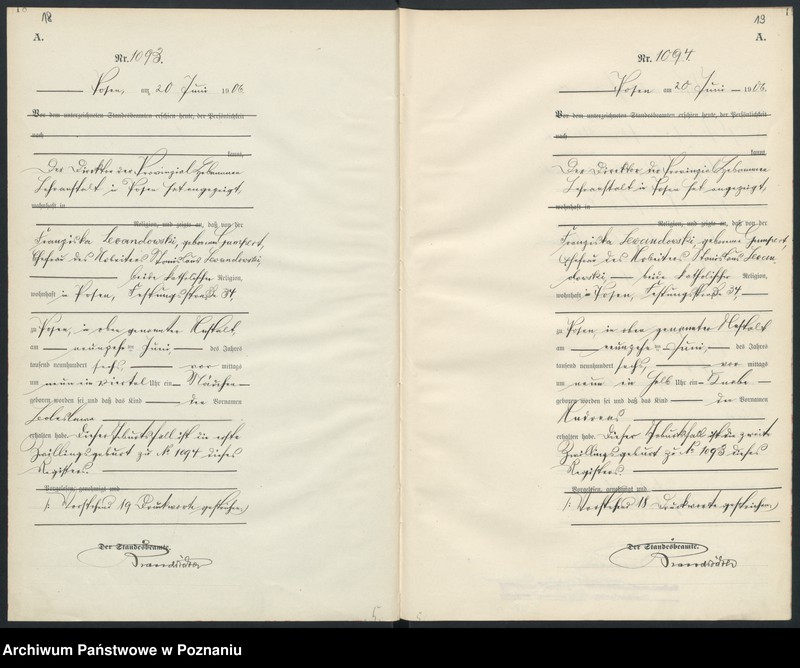 18
A.
Nr. 1093.
Posen, am 20 Juni 1906.
Vor dem unterzeichneten Standesbeamten erschien heute, der Persönlichkeit
nach
kannt,
Der Direktor der Provinzial Hebammen
Lehranstalt in Posen hat angezeigt,
wohnhaft in
Religion, und zeigte an, daß von der
Franziska Lewandowski, geborene
Ehefrau des Arbeiters Stanislaus Lewandowski,
beide katholischer Religion,
wohnhaft in Posen, Festungsstraße
zu Posen, in oben genannter Anstalt,
am neunzehnten Juni, des Jahres
tausend neunhundert sechs, vor mittags
um neun ein viertel Uhr ein Mädchen
geboren worden sei und daß das Kind den Vornamen
Boleslawa
erhalten habe. Dieser Geburtsfall ist die erste
Zwillingsgeburt zu N 1094 dieses
Registers.
Vorgelesen, genehmigt und
/: Vorstehend 19 Druckworte gestrichen :/
Der Standesbeamte.
19
A.
Nr. 1094.
Posen am 20 Juni 1906.
Vor dem unterzeichneten Standesbeamten erschien heute, der Persönlichkeit
nach
kannt,
Der Direktor der Provinzial Hebammen
Lehranstalt in Posen hat angezeigt,
wohnhaft in
Religion, und zeigte an, daß von der
Franziska Lewandowski, geborene
Ehefrau des Arbeiters Stanislaus Lewan-
dowski, beide katholischer Religion,
wohnhaft in Posen, Festungsstraße
zu Posen, in oben genannter Anstalt
am neunzehnten Juni, des Jahres
tausend neunhundert sechs, vor mittags
um neun ein halb Uhr ein Knabe
geboren worden sei und daß das Kind den Vornamen
Andreas
erhalten habe. Dieser Geburtsfall ist die zweite
Zwillingsgeburt zu N 1093 dieses
Registers.
Vorgelesen, genehmigt und
/: Vorstehend 18 Druckworte gestrichen :/
Der Standesbeamte.
Archiwum Państwowe w Poznaniu